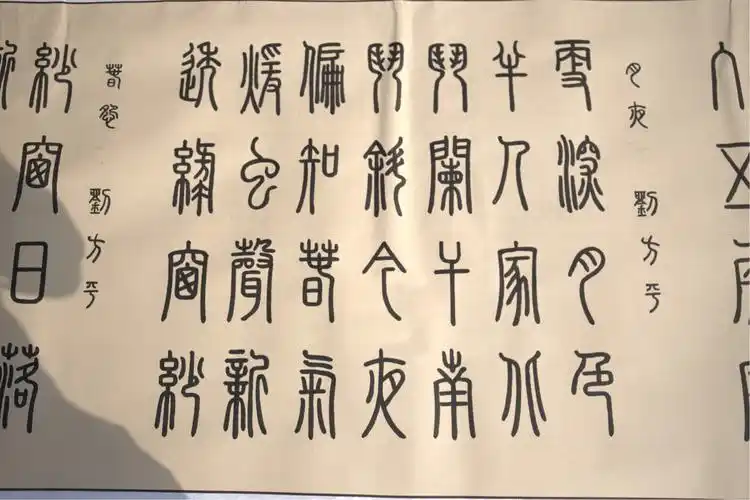 月夜 劉方平
更深月色
半人家北
鬥闌干南
鬥斜今夜
偏知春氣
煖虫聲新
透綠窗紗
春怨 劉方平
紗窗日落